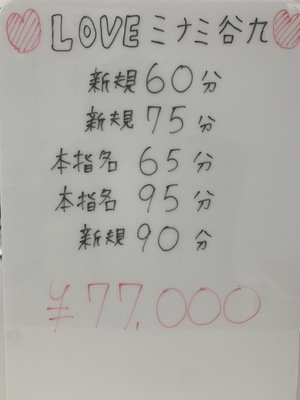 LOVE ミナミ谷九
新規 60分
新規 75分
本指名 65分
本指名 95分
新規 90分
¥77,000